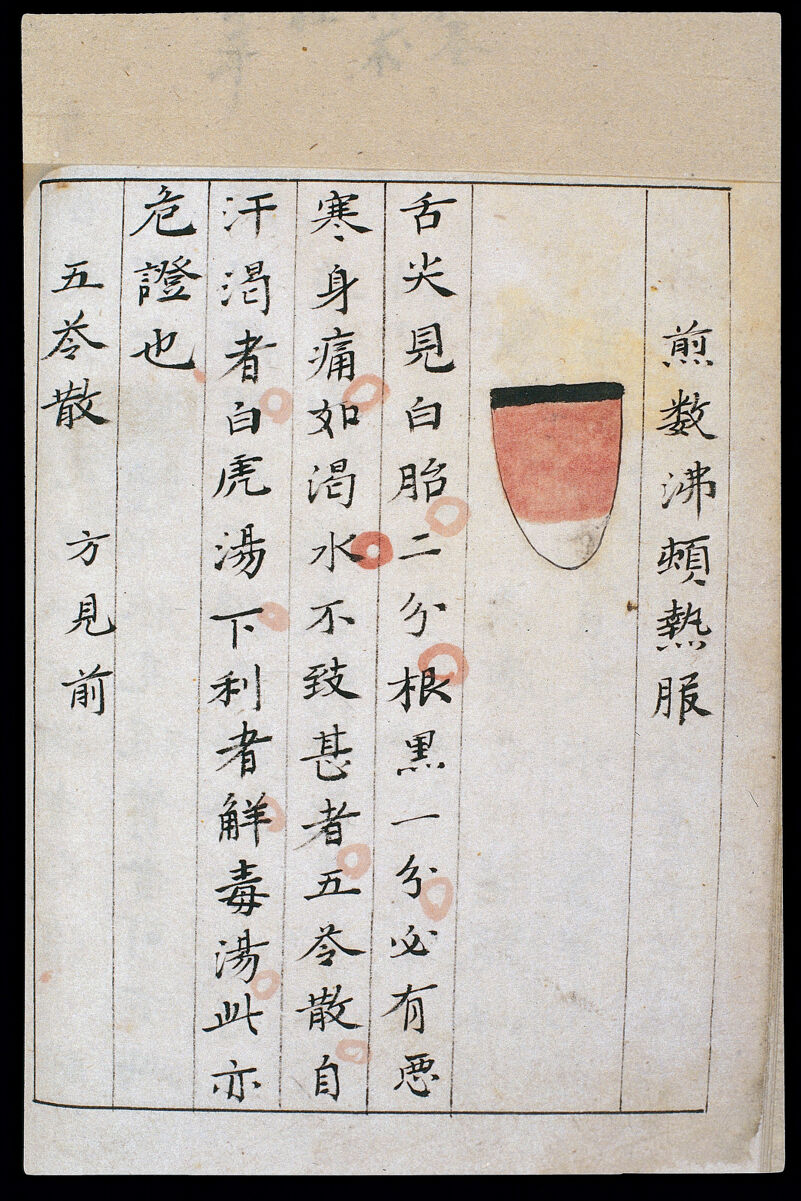 煎数沸頓熱服
舌尖見白胎二分根黒一分必有悪
寒身痛如渴水不致甚者五苓散自
汗渴者白虎湯下利者解毒湯此亦
危證也
五苓散 方見前